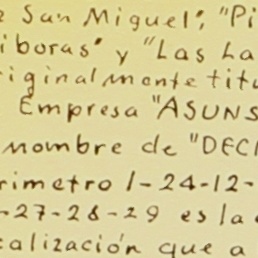 San Miguel", "Pi
iboras" y "Las La
iginalmente titu
Empresa "ASUNS
nombre de "DECI
rimetro 1-24-12-
-27-28-29 es la
calización que a